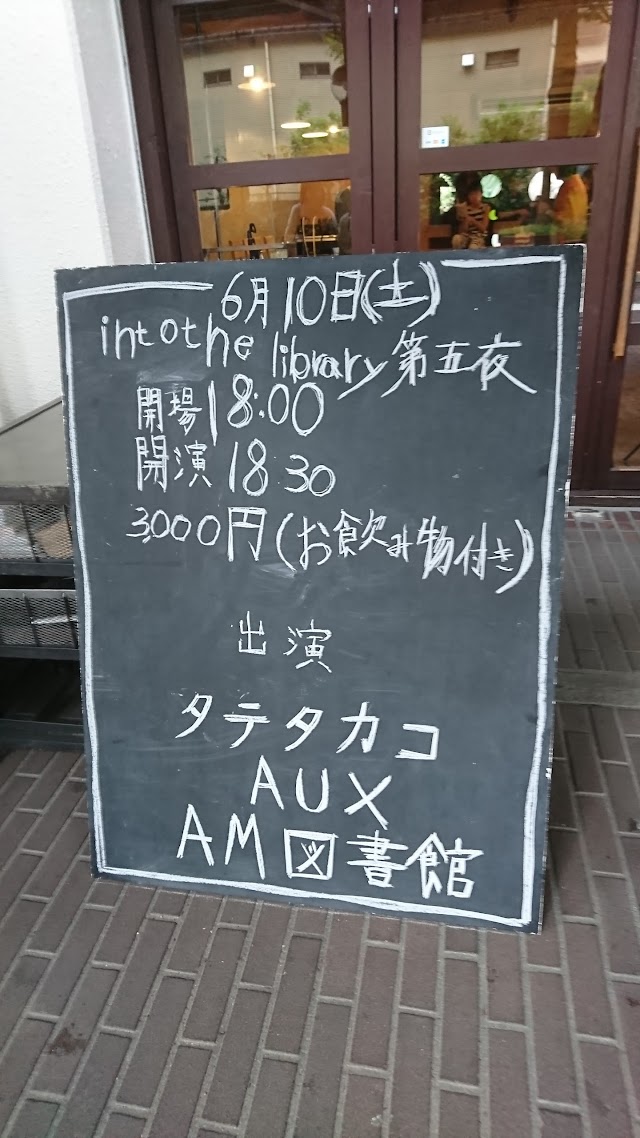 6月10日(土)
into the library 第五夜
開場 18:00
開演 18 30
3,000円(お飲み物付き)
出演
タテタカコ
AUX
AM図書館